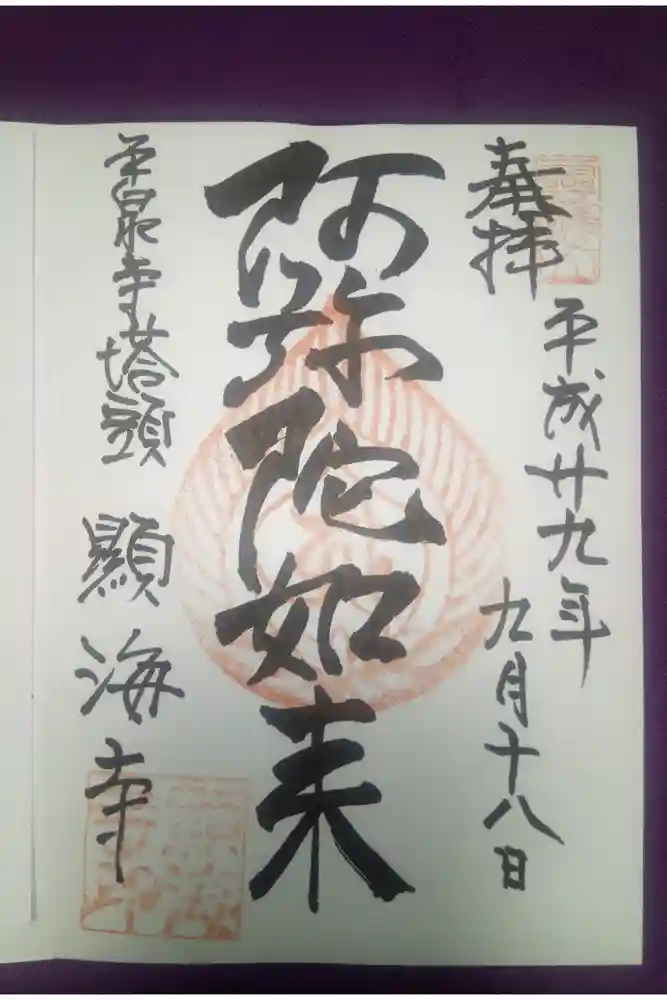 奉拝
平成廿九年
九月十八日
阿弥陀如来
平泉寺塔頭 顯海寺